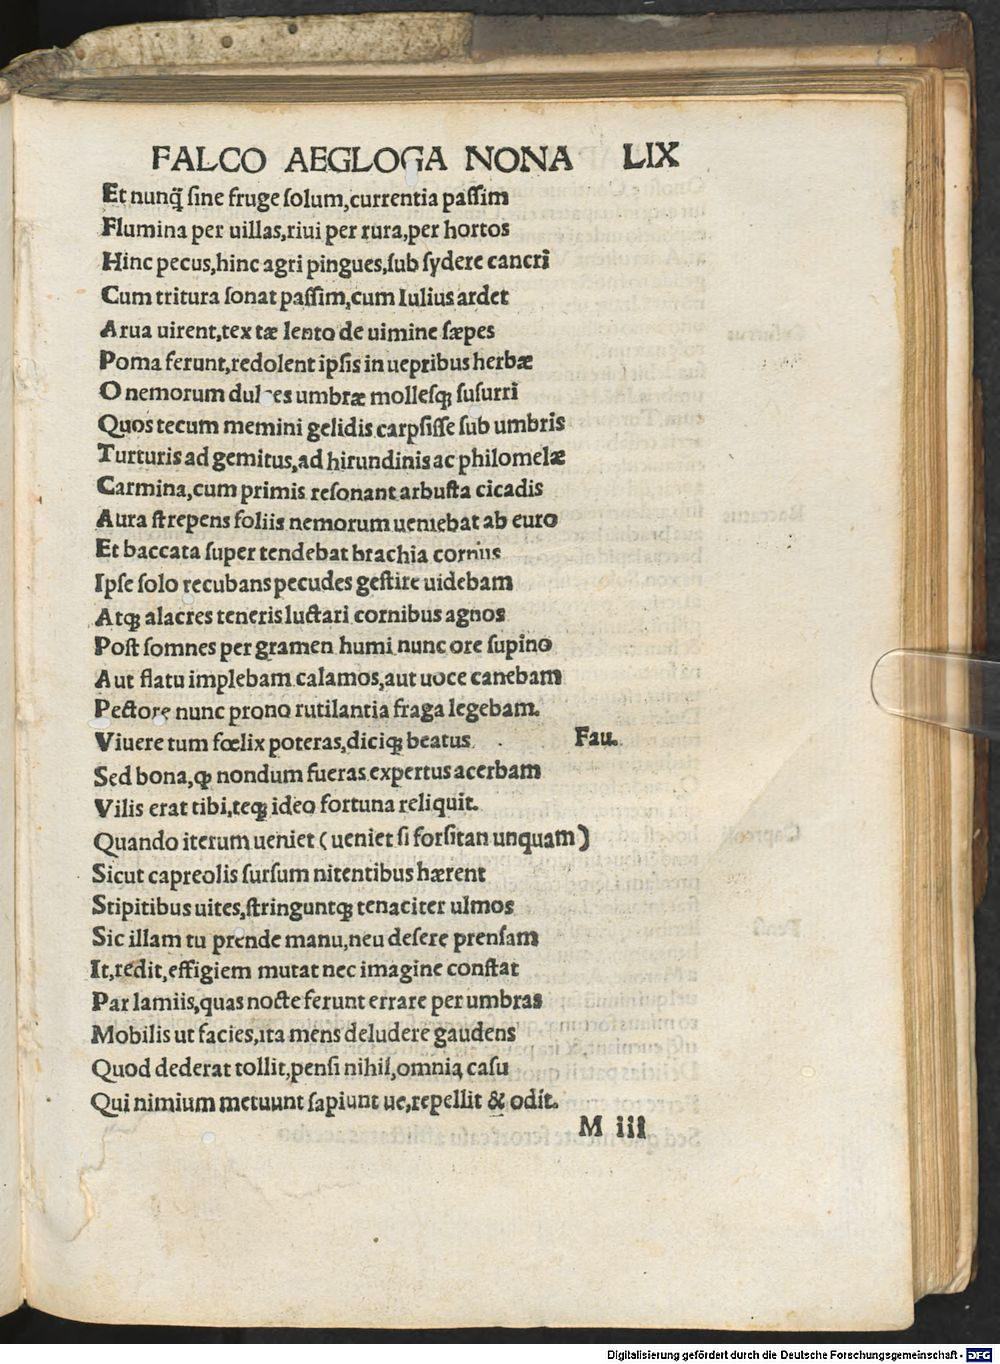 FALCO AEGLOGA NONA LIX
Et nunq̃ ſine fruge ſolum,currentia paſſim
Flumina per uillas,riui per rura,per hortos
Hinc pecus,hinc agri pingues,ſub ſydere cancri
Cum tritura ſonat paſſim,cum Iulius ardet
Arua uirent,tex tæ lento de uimine ſæpes
Poma ferunt,redolent ipſis in uepribus herbæ
O nemorum dulces umbræ molleſqꝫ ſuſurri
Quos tecum memini gelidis carpſiſſe ſub umbris
Turturis ad gemitus,ad hirundinis ac philomelæ
Carmina,cum primis reſonant arbuſta cicadis
Aura ſtrepens foliis nemorum ueniebat ab euro
Et baccata ſuper tendebat brachia cornus
Ipſe ſolo recubans pecudes geſtire uidebam
Atqꝫ alacres teneris luctari cornibus agnos
Poſt ſomnes per gramen humi nunc ore ſupino
Aut flatu implebam calamos,aut uoce canebam
Pectore nunc prono rutilantia fraga legebam.
Viuere tum fœlix poteras,diciqꝫ beatus. Fau.
Sed bona,ꝙ nondum fueras expertus acerbam
Vilis erat tibi,teqꝫ ideo fortuna reliquit.
Quando iterum ueniet (ueniet ſi forſitan unquam)
Sicut capreolis ſurſum nitentibus hærent
Stipitibus uites,ſtringuntqꝫ tenaciter ulmos
Sic illam tu prende manu,neu deſere prenſam
It,redit,effigiem mutat nec imagine conſtat
Par lamiis,quas nocte ferunt errare per umbras
Mobilis ut facies,ita mens deludere gaudens
Quod dederat tollit,penſi nihil,omnia caſu
Qui nimium metuunt ſapiunt ue,repellit & odit.
M iii
Digitalisierung gefördert durch die Deutsche Forschungsgemeinschaft - DFG